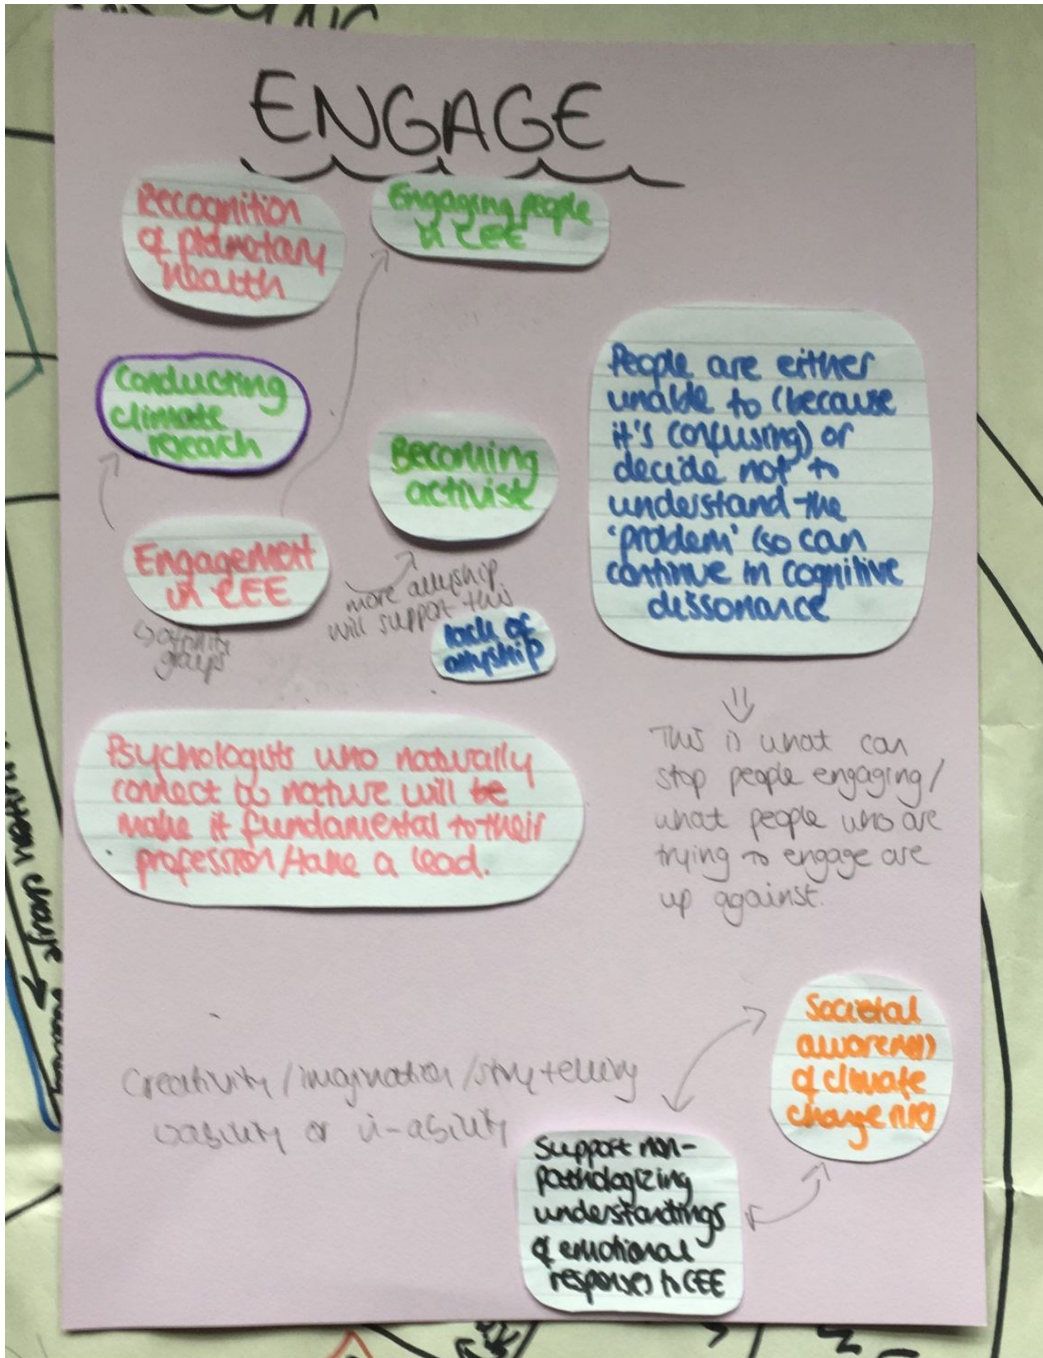 ENGAGE
Recognition
of planetary
health
Engaging people
in CEE
Conducting
climate
reseach
Becoming
activist
Engagement
in CEE
affinity
groups
more allyship
will support this
lack of
allyship
People are either
unable to (because
it's confusing) or
decide not to
understand the
'problem' (so can
continue in cognitive
dissonance
This is what can
stop people engaging/
what people who are
trying to engage are
up against.
Psychologists who naturally
connect to nature will be
make it fundamental to their
profession/take a lead.
Creativity/imagination/storytelling
ability or in-ability
Societal
awareness
of climate
change
Support non-
pathologizing
understandings
of emotional
responses to CEE